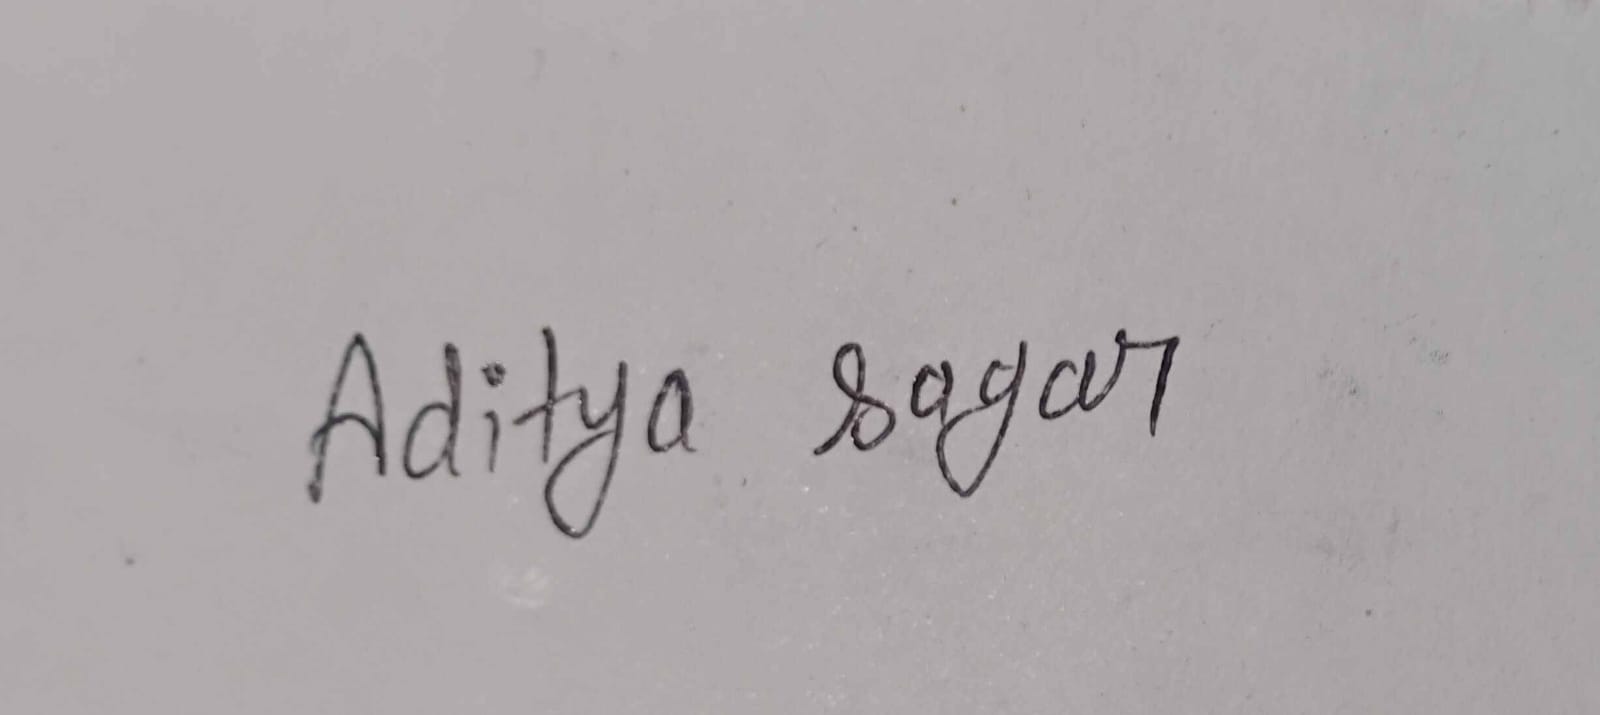 Aditya sagar